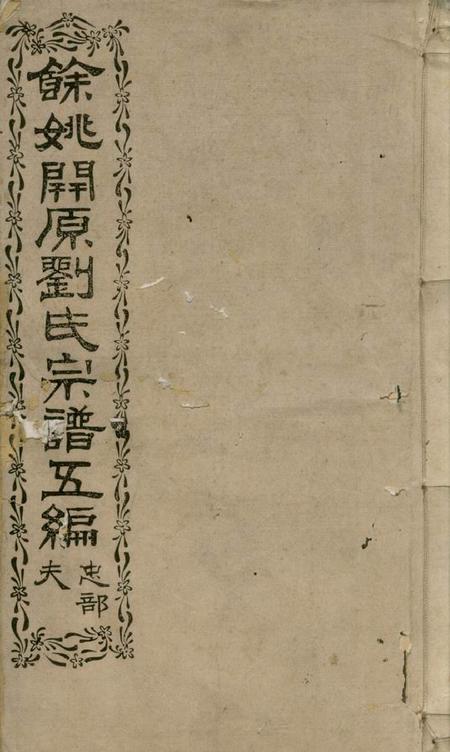 餘姚開原劉氏宗譜五編
忠部
夫